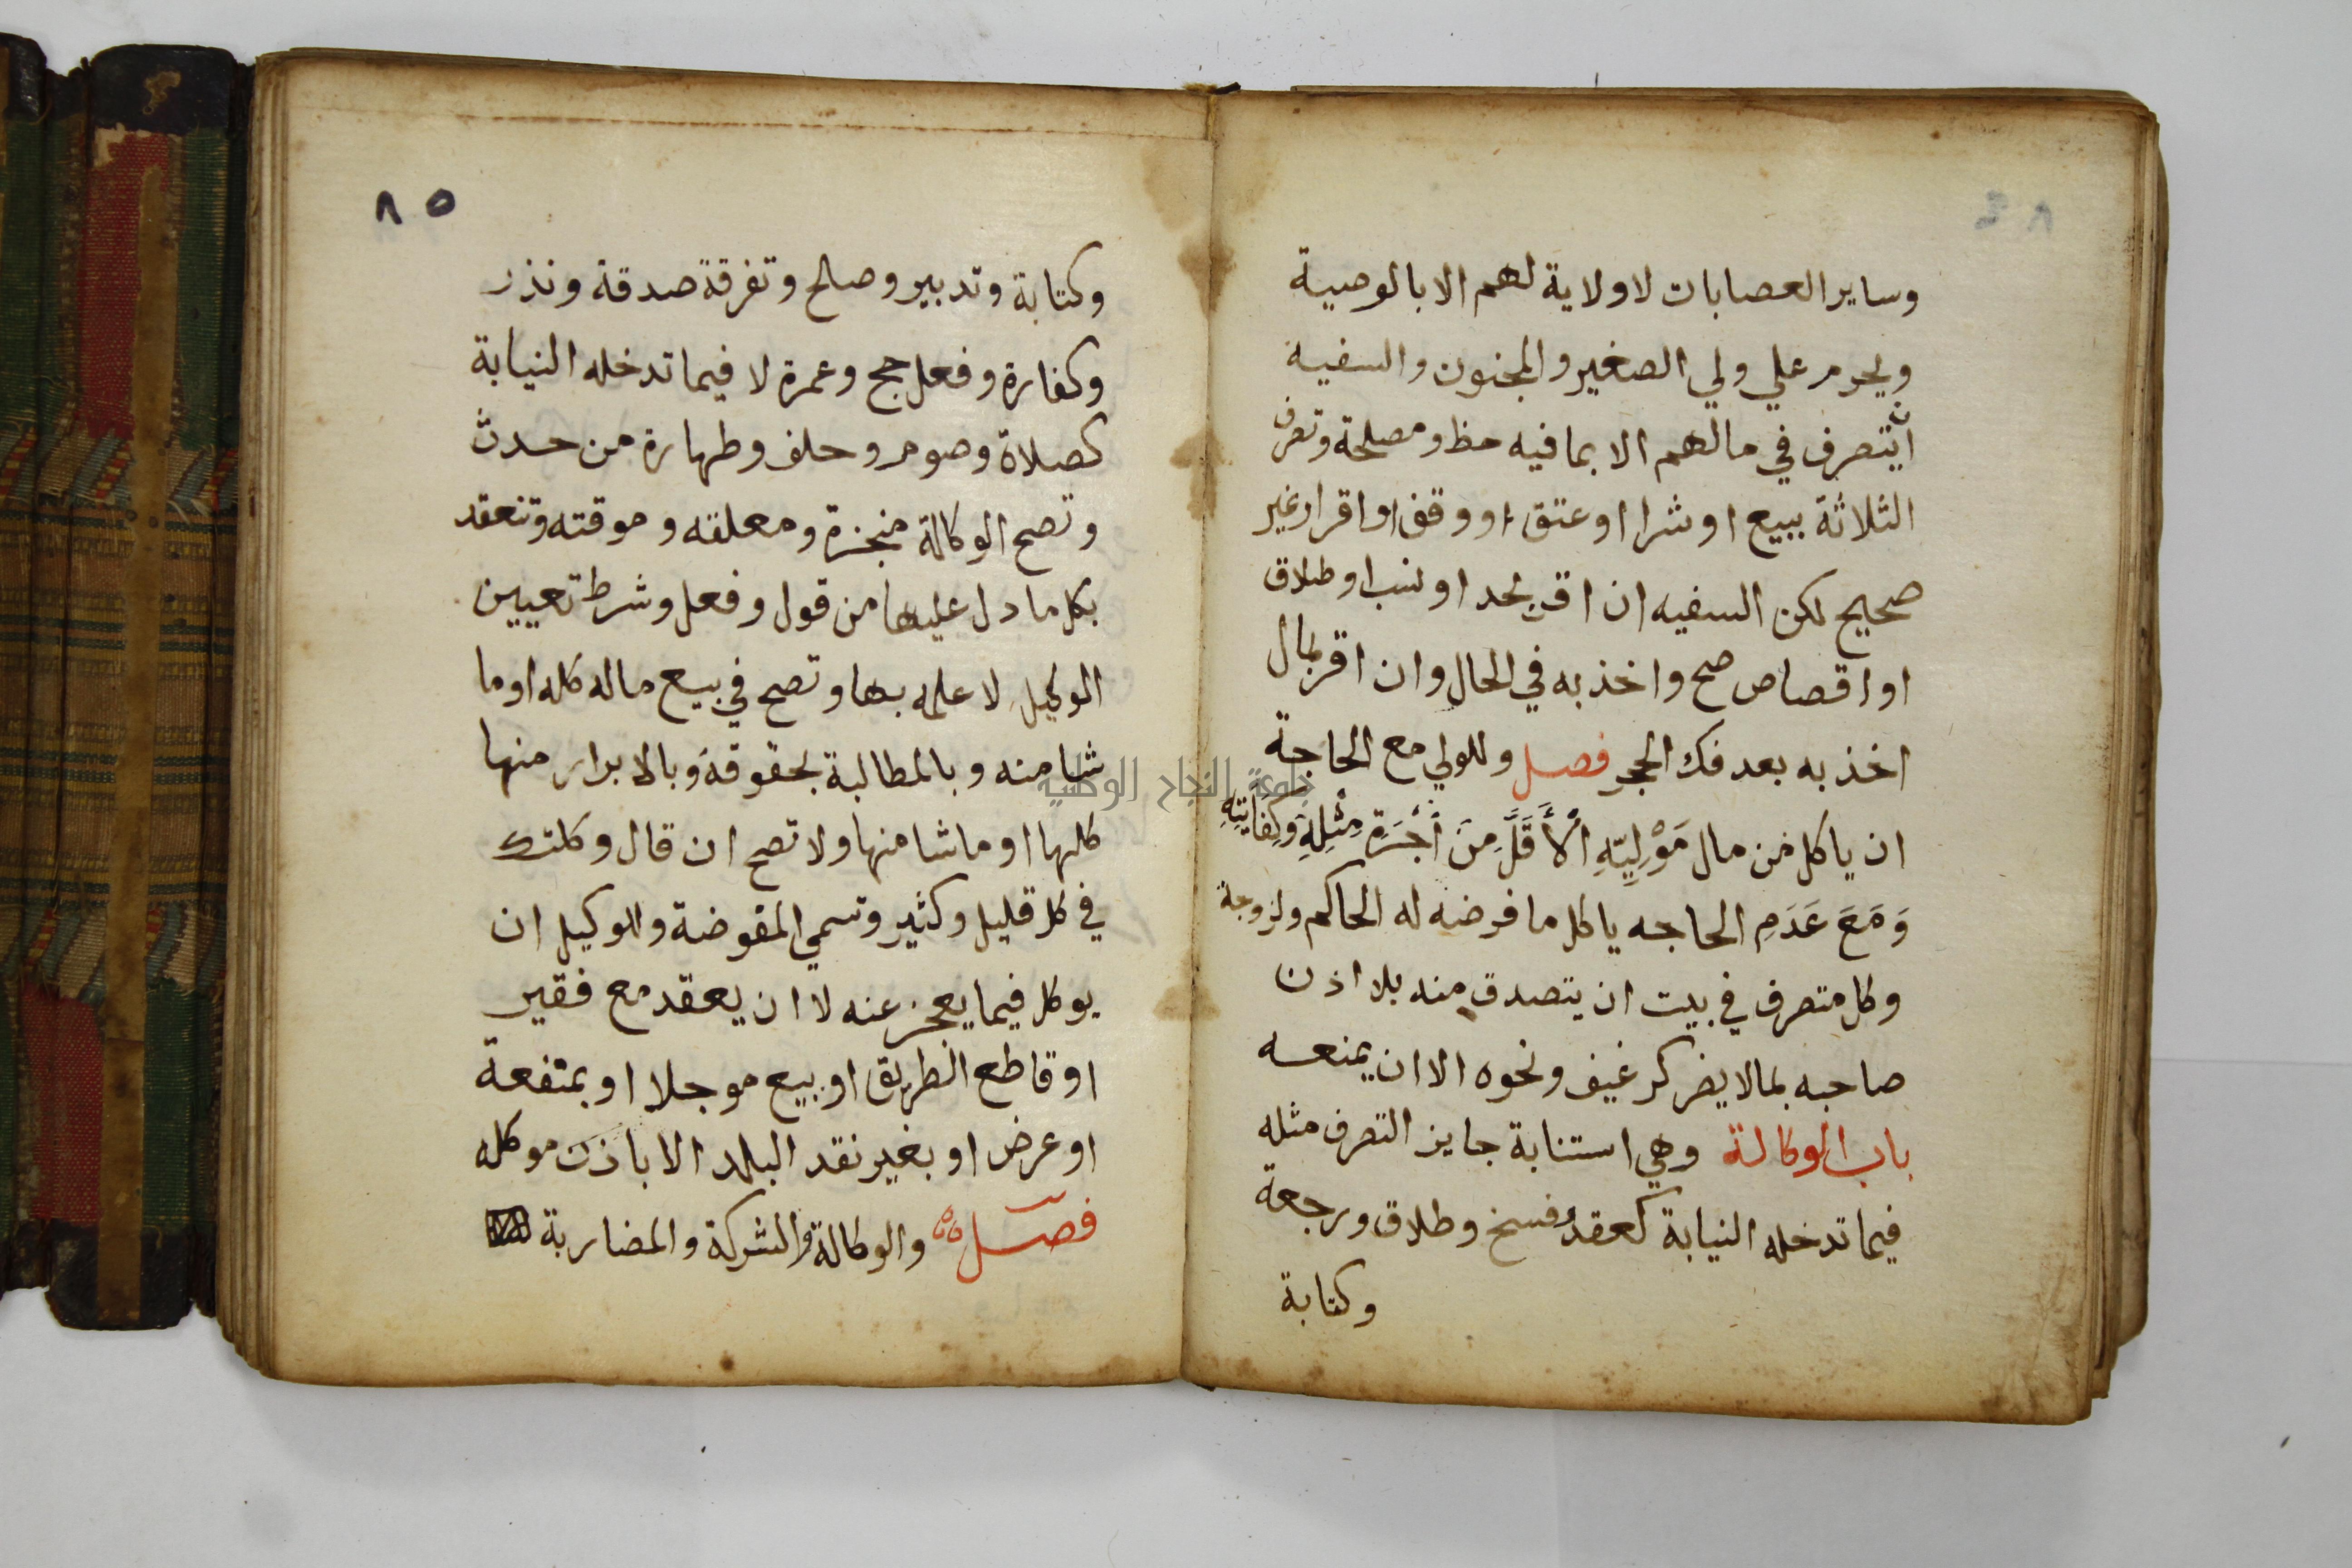 ٨٤
وساير العصابات لا ولاية لهم الا بالوصية
ويحرم علي ولي الصغير والمجنون والسفيه
ان يتصرف في مالهم الا بما فيه حظ ومصلحة وتصرف
الثلاثة ببيع او شرا او عتق او وقف او اقرار غير
صحيح لكن السفيه ان اقر بحد او نسب او طلاق
او اقصاص صح واخذ به في الحال وان اقر بمال
اخذ به بعد فك الحجر فصل وللولي مع الحاجة
ان ياكل من مال مَوْلِيِّهِ الْأَقَلَّ مِنَ أُجْرَةِ مِثْلِهِ وَكِفَايَتِهِ
وَمَعَ عَدَمِ الحاجه ياكل ما فرضه له الحاكم ولزوجة
وكل متصرف في بيت ان يتصدق منه بلا اذن
صاحبه بما لا يضر كرغيف ونحوه الا ان يمنعه
باب الوكالة وهي استنابة جايز التصرف مثله
فيما تدخله النيابة كعقد وفسخ وطلاق ورجعة
وكتابة
٨٥
وكتابة وتدبير وصلح وتفرقة صدقة ونذر
وكفارة وفعل حج وعمرة لا فيما تدخله النيابة
كصلاة وصوم وحلف وطهارة من حدث
وتصح الوكالة منجزة ومعلقه وموقته وتنعقد
بكل ما دل عليها من قول وفعل وشرط تعيين
الوكيل لا علمه بها وتصح في بيع ماله كله او ما
شا منه وبالمطالبة بحقوقه وبالابرار منها
كلها او ما شا منها ولا تصح ان قال وكلتك
في كل قليل وكثير وتسمي المفوضة وللوكيل ان
يوكل فيما يعجز عنه لا ان يعقد مع فقير
او قاطع الطريق او بيع موجلا او بمنفعة
او عرض او بغير نقد البلد الا باذن موكله
فصل والوكالة والشركة والمضاربة
جامعة النجاح الوطنية